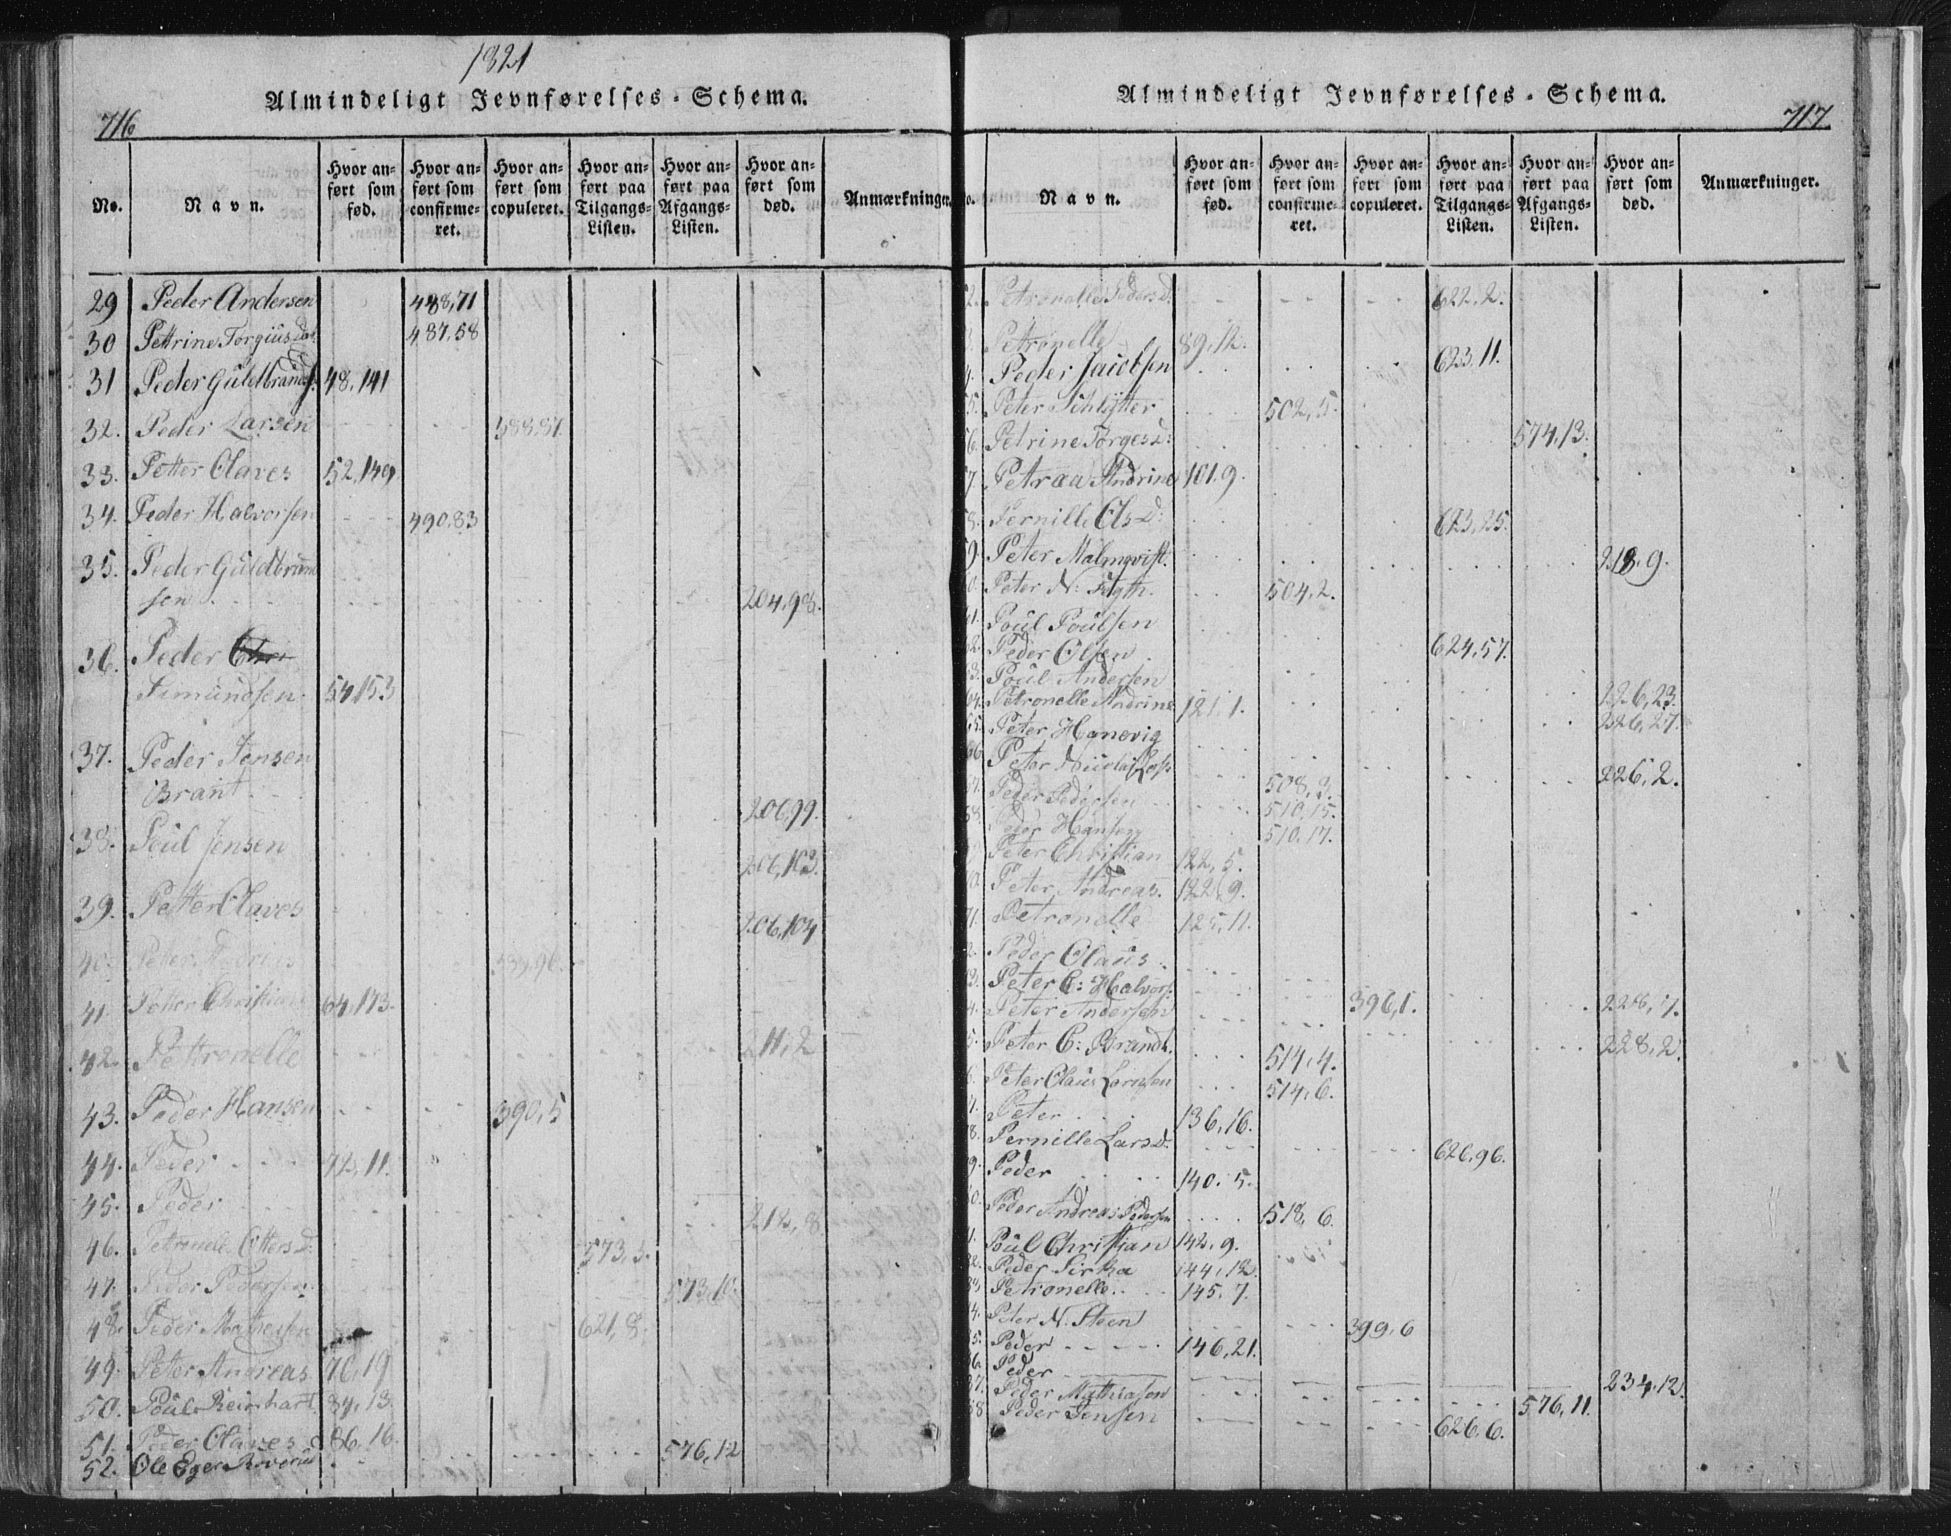 1821
Almindeligt Jevnførelses-Schema.
716
No.
Navn.
Hvor anført som fød.
Hvor anført som confirmeret.
Hvor anført som copuleret.
Hvor anført paa Tilgangs-Listen.
Hvor anført paa Afgangs-Listen.
Hvor anført som død.
Anmærkninger
29 Peder Andersen 448,71
30 Pettrine Torgius 487,58
31 Peder Güldbrands. 48,141
32. Peder Larsen 388,87.
33. Petter Claves 52,149
34. Peder Halvorsen 490,83
35. Peder Güldbrand
sen 204,98.
36. Peder
Simundsen 54,153
37. Peder Jensen
Brant 206,99.
38. Poül Jensen 206,103.
39. Petter Claves 206,104
40. Petter 389,96.
41. Petter Christian 64,173.
42. Pettronelle 211,2
43. Peder Hansen 390,5
44. Peder 72,11.
45. Peder 212,8
46. Petronele 573,3.
47. Peder Pedersen 573,10.
48. Peder Mathesen 621,8.
49. Peter Andreas 76,19
50. Poül Reinhart. 84,13.
51. Peder Claves 86,16.
52. Ole Eger 576,12
Almindeligt Jevnførelses-Schema.
717.
No.
Navn.
Hvor anført som fød.
Hvor anført som confirmeret.
Hvor anført som copuleret.
Hvor anført paa Tilgangs-Listen.
Hvor anført paa Afgangs-Listen.
Hvor anført som død.
Anmærkninger.
2. Petronelle Peders D. 622,2.
Petronelle 89,12.
4. Peder Jacobsen 623,11.
5. Peter Schlytter 502,5.
6. Petrine Torges D: 574,13.
7. Petraa Andrine 101,9.
8. Pernille Ols D: 623,25.
9. Peter Malmqvist. 218,9.
0. Peter N: 504,2.
1. Poül Poülsen
2. Peder Olsen 624,57.
3. Poül Andersen 226,23.
64. Petronelle Andrine 121,1.
65. Peter Hanevig 226,27.
66. Peter Nicolai 226,2.
Peder Pedersen 508,3.
510,15.
68 Peder Hansen 510,17.
Peter Christian 122,5.
0. Peter Andreas. 122,9.
71. Petronelle 125,11.
2. Peder Claüs
3. Peter C: Halvors. 228,7.
4. Peter Andersen 396,1.
5. Peter C: Brandt. 514,4. 228,2.
6. Peter Claus 514,6.
7. Peter 136,16.
8. Pernille Lars D. 626,96.
9. Peder 140,5.
0. Peder Andreas Pedersen 518,6.
1. Poül Christian 142,9.
82. Peder 144,12.
83. Petronelle 145,7.
4. Peter N. Steen 399,6
5. Peder 146,21.
6. Peder 234,12.
7. Peder Mathiasen 576,11.
88 Peder Jensen 626,6.